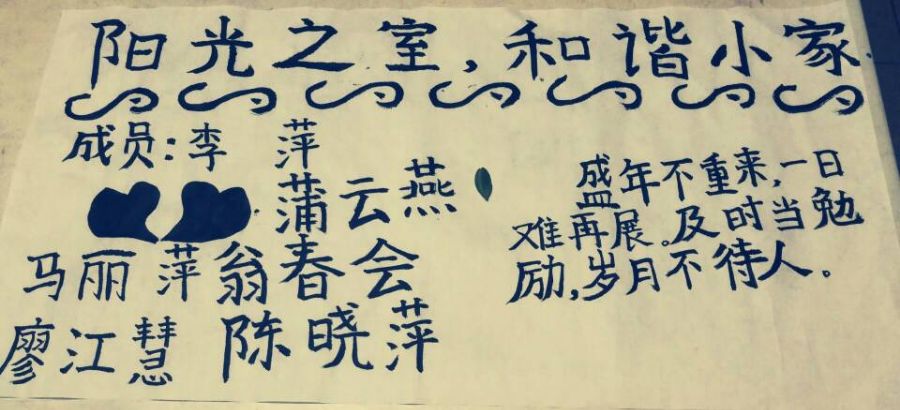 阳光之室,和谐小家
成员:李 萍
蒲云燕
马丽萍翁春会
廖江慧 陈晓萍
盛年不重来,一日
难再展。及时当勉
励,岁月不待人。